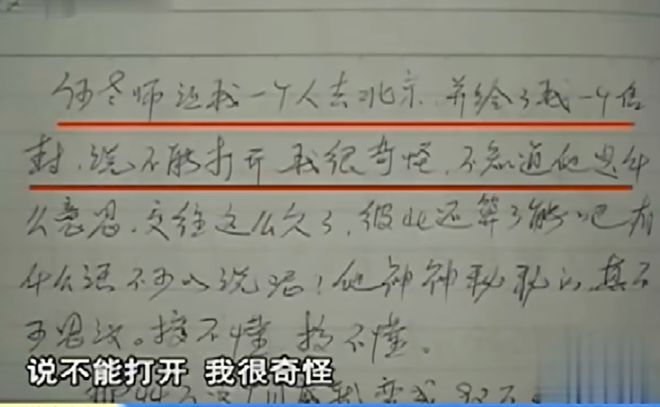 何老师让我一个人去北京,并给了我一个信
封,说不能打开 我很奇怪,不知道他是什
么意思,交往这么久了,彼此还算了解吧 有
什么话不可以说呢!他神神秘秘的,真不
可思议。搞不懂,搞不懂。
说不能打开 我很奇怪